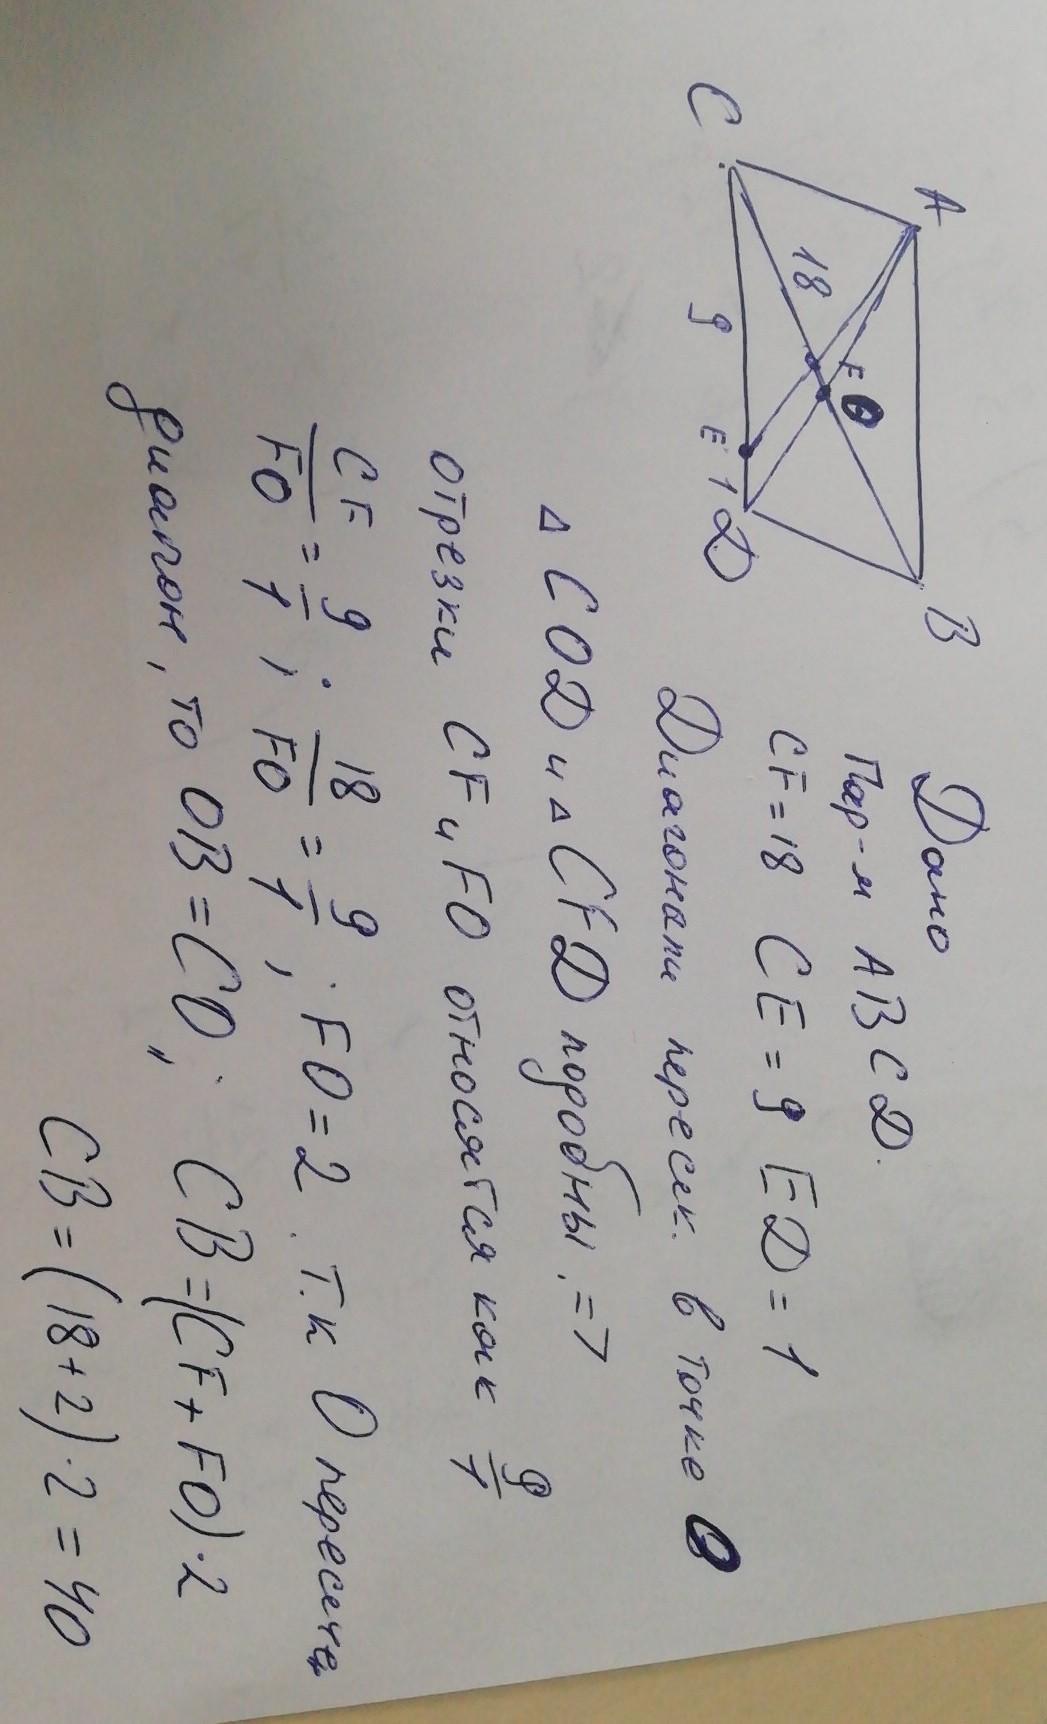 Дано
Пар-м ABCD.
CF=18 CE=9 ED=1
Диагонали пересек. в точке O
△ COD и △ CFD подобны. =>
отрезки CF и FO относятся как 9/1
CF/FO = 9/1; 18/FO = 9/1; FO=2. Т.к O пересече
диагон, то OB=CO; CB=(CF+FO)·2
CB=(18+2)·2=40
A
B
C
18
F
O
9
E
1
D